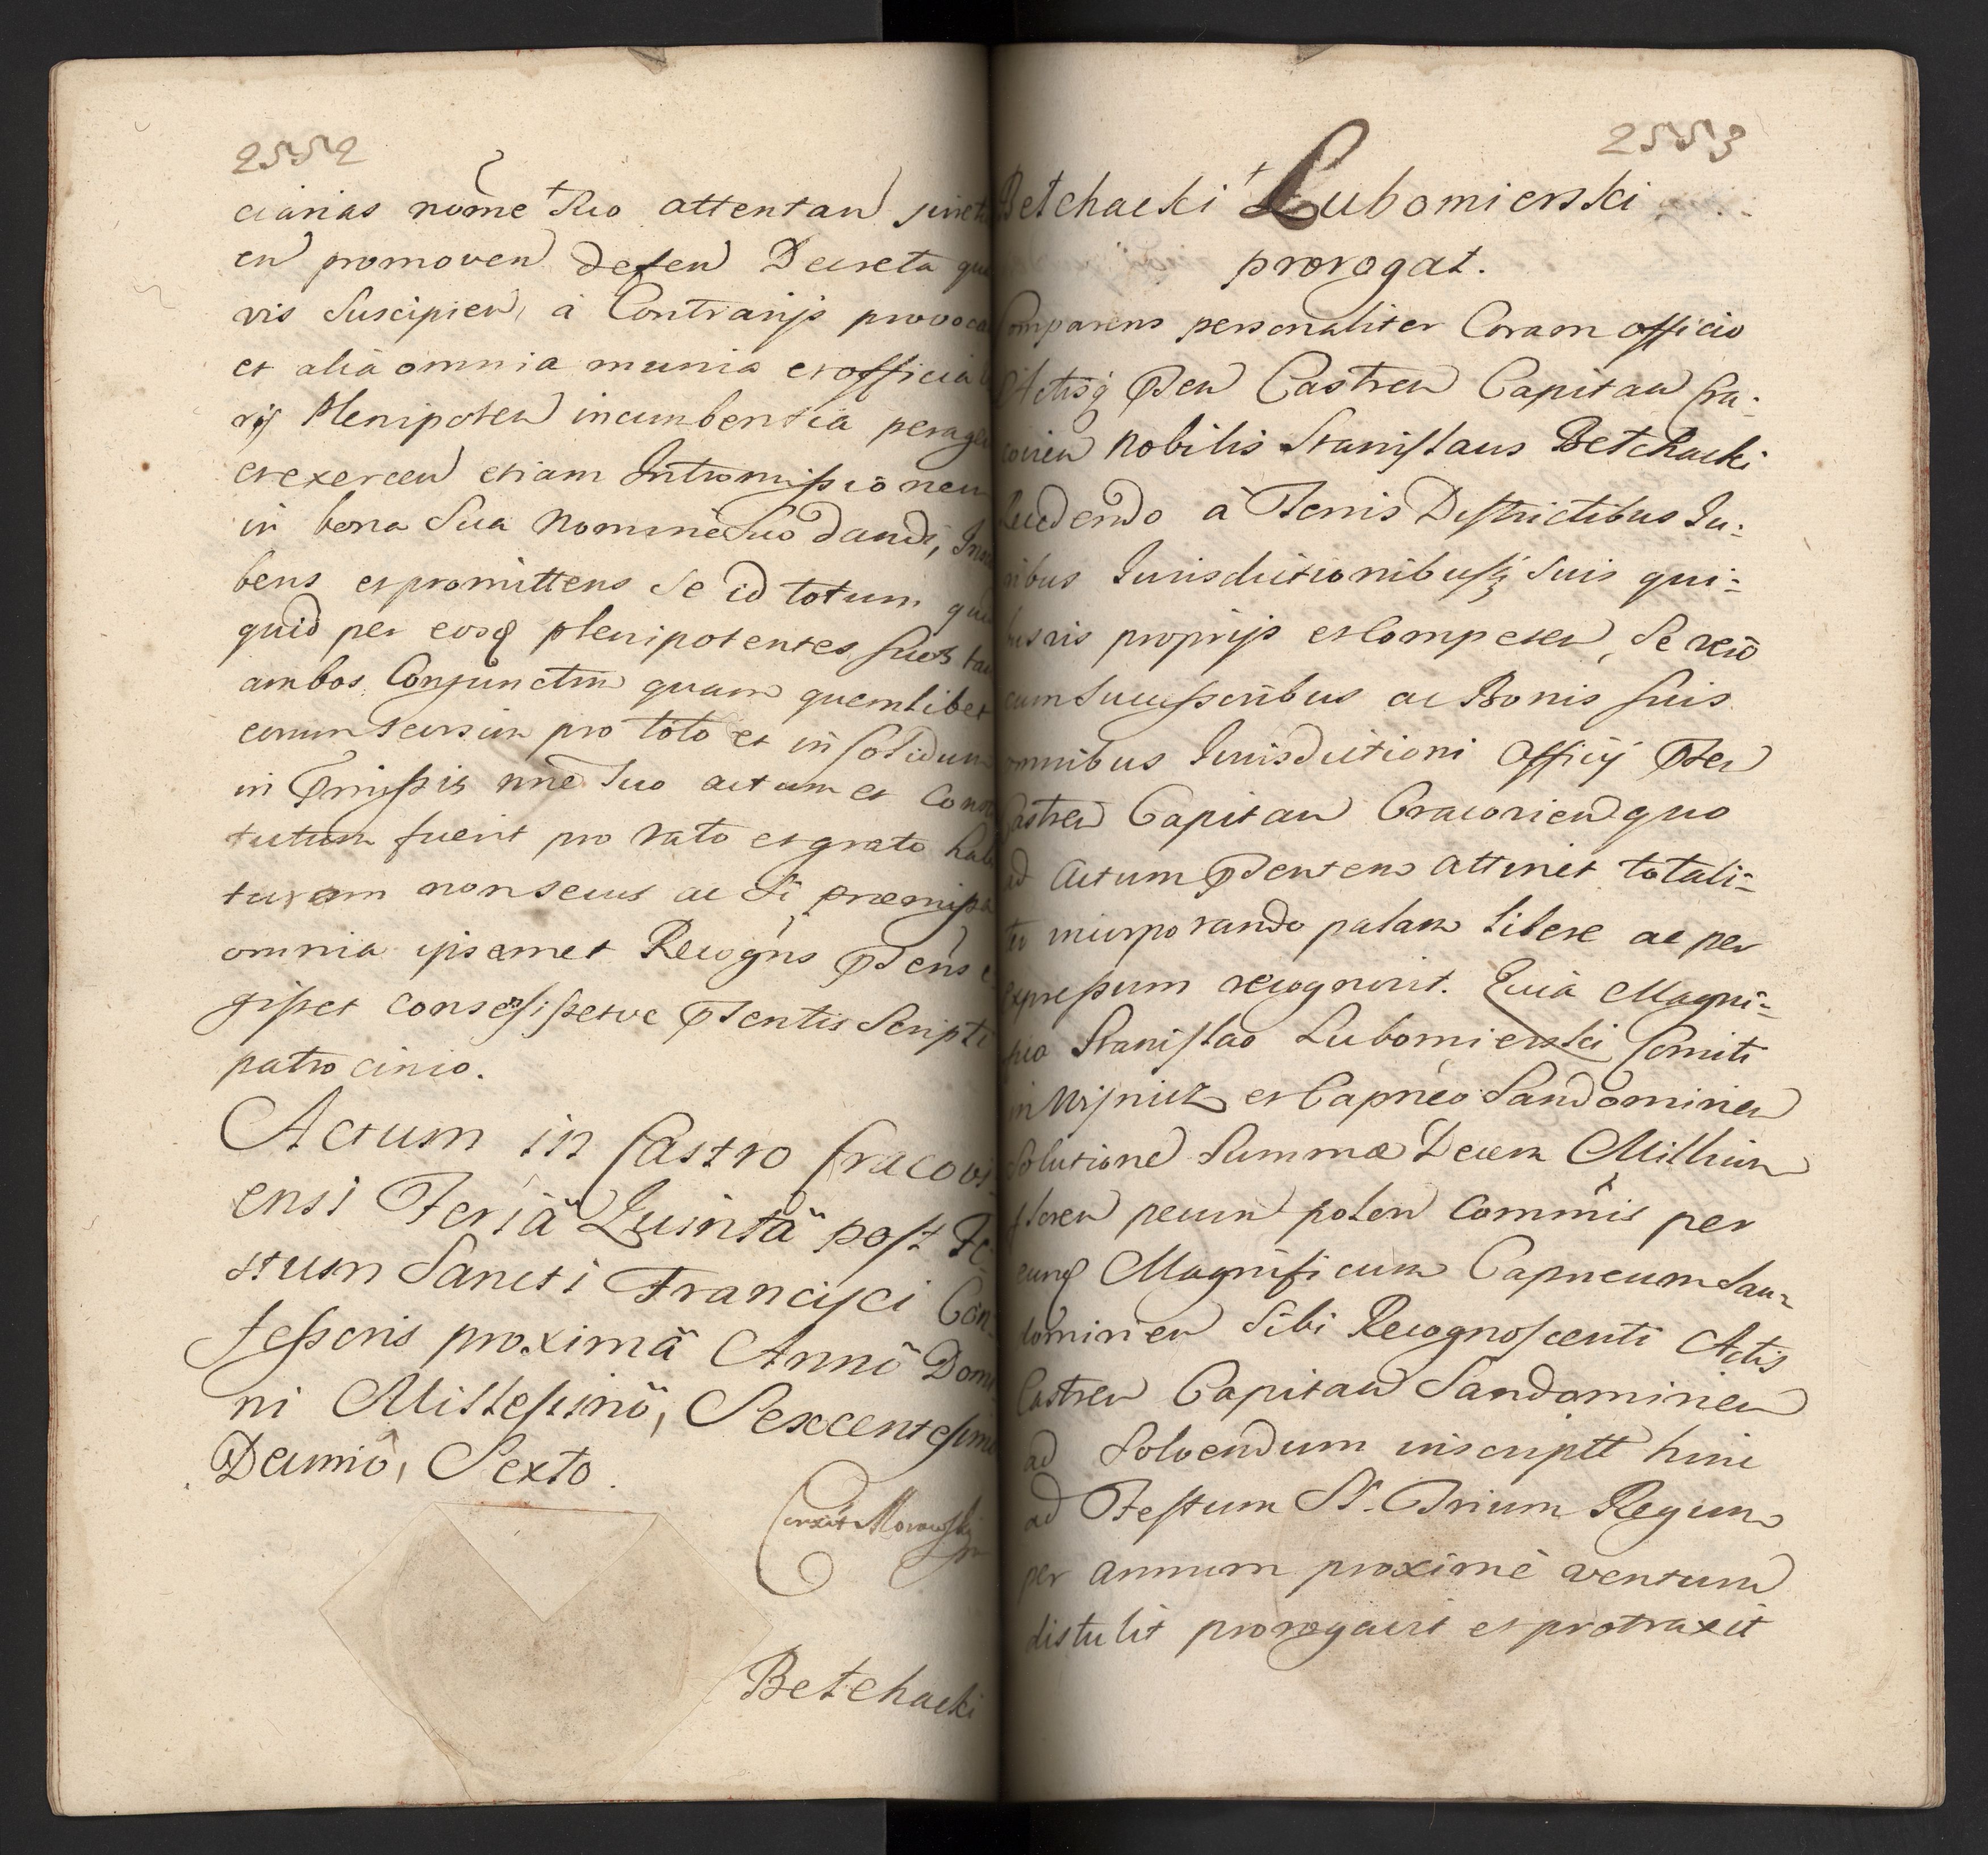 2552
ciarias nom̃e suo attentan
en promoven defen Decreta
vis Suscipien, à Contrarijs
et alia omnia munia et officia
rij Plenipoten incumbentia
et exercen etiam Intromissionem
in bona Sua Nomine Suo dandi,
bens et promittens Se id totum
quid per eosq plenipotentes suos
ambos Conjunctim quam quemlibet
eorum seorsim pro toto et in solidum
in Pmissis nñe Suo actum et
tutum fuerit pro rato et grato
turam non secus ac Si præmissa
omnia ipsemet Recogñs Pseñs
gisset consensissetve Psentis Scripti
patrocinio.
Actum in Castro Cracovi-
ensi Feriâ Quintâ post Fe-
stum Sancti Francisci Con-
fessoris proximâ Annô Domi
ni Millesimô, Sexcentesimo
Decimô, Sexto.
Morawski
Betchacki
2553
Betchacki Lubomierski
prorogat.
Comparens personaliter Coram officio
Actisq Psen Castren Capitan Cra-
covien Nobilis Stanislaus Betchacki
Recedendo à Terris Districtibus Ju-
ribus Jurisdictionibusq Suis qui-
busvis proprijs et Competen, Se verò
cum Successoribus ac Bonis suis
omnibus Jurisdictioni Officij Psen
Castren Capitan Cracovien quo
ad Actum Psentem attinet totali-
ter incorporando palam libere ac per
expressum recognovit. Quia Magni-
fico Stanislao Lubomierski Comiti
in Wisnicz et Capneo Sandomirien
Solutione Summæ Decem Millium
floren pecun polon Commis per
eunq Magnificum Capneum San-
domirien Sibi Recognoscenti Actis
Castren Capitan Sandomirien
ad Solvendum inscriptt hinc
ad Festum SS. Trium Regum
per annum proximè venturum
distulit prorogavit et protraxit